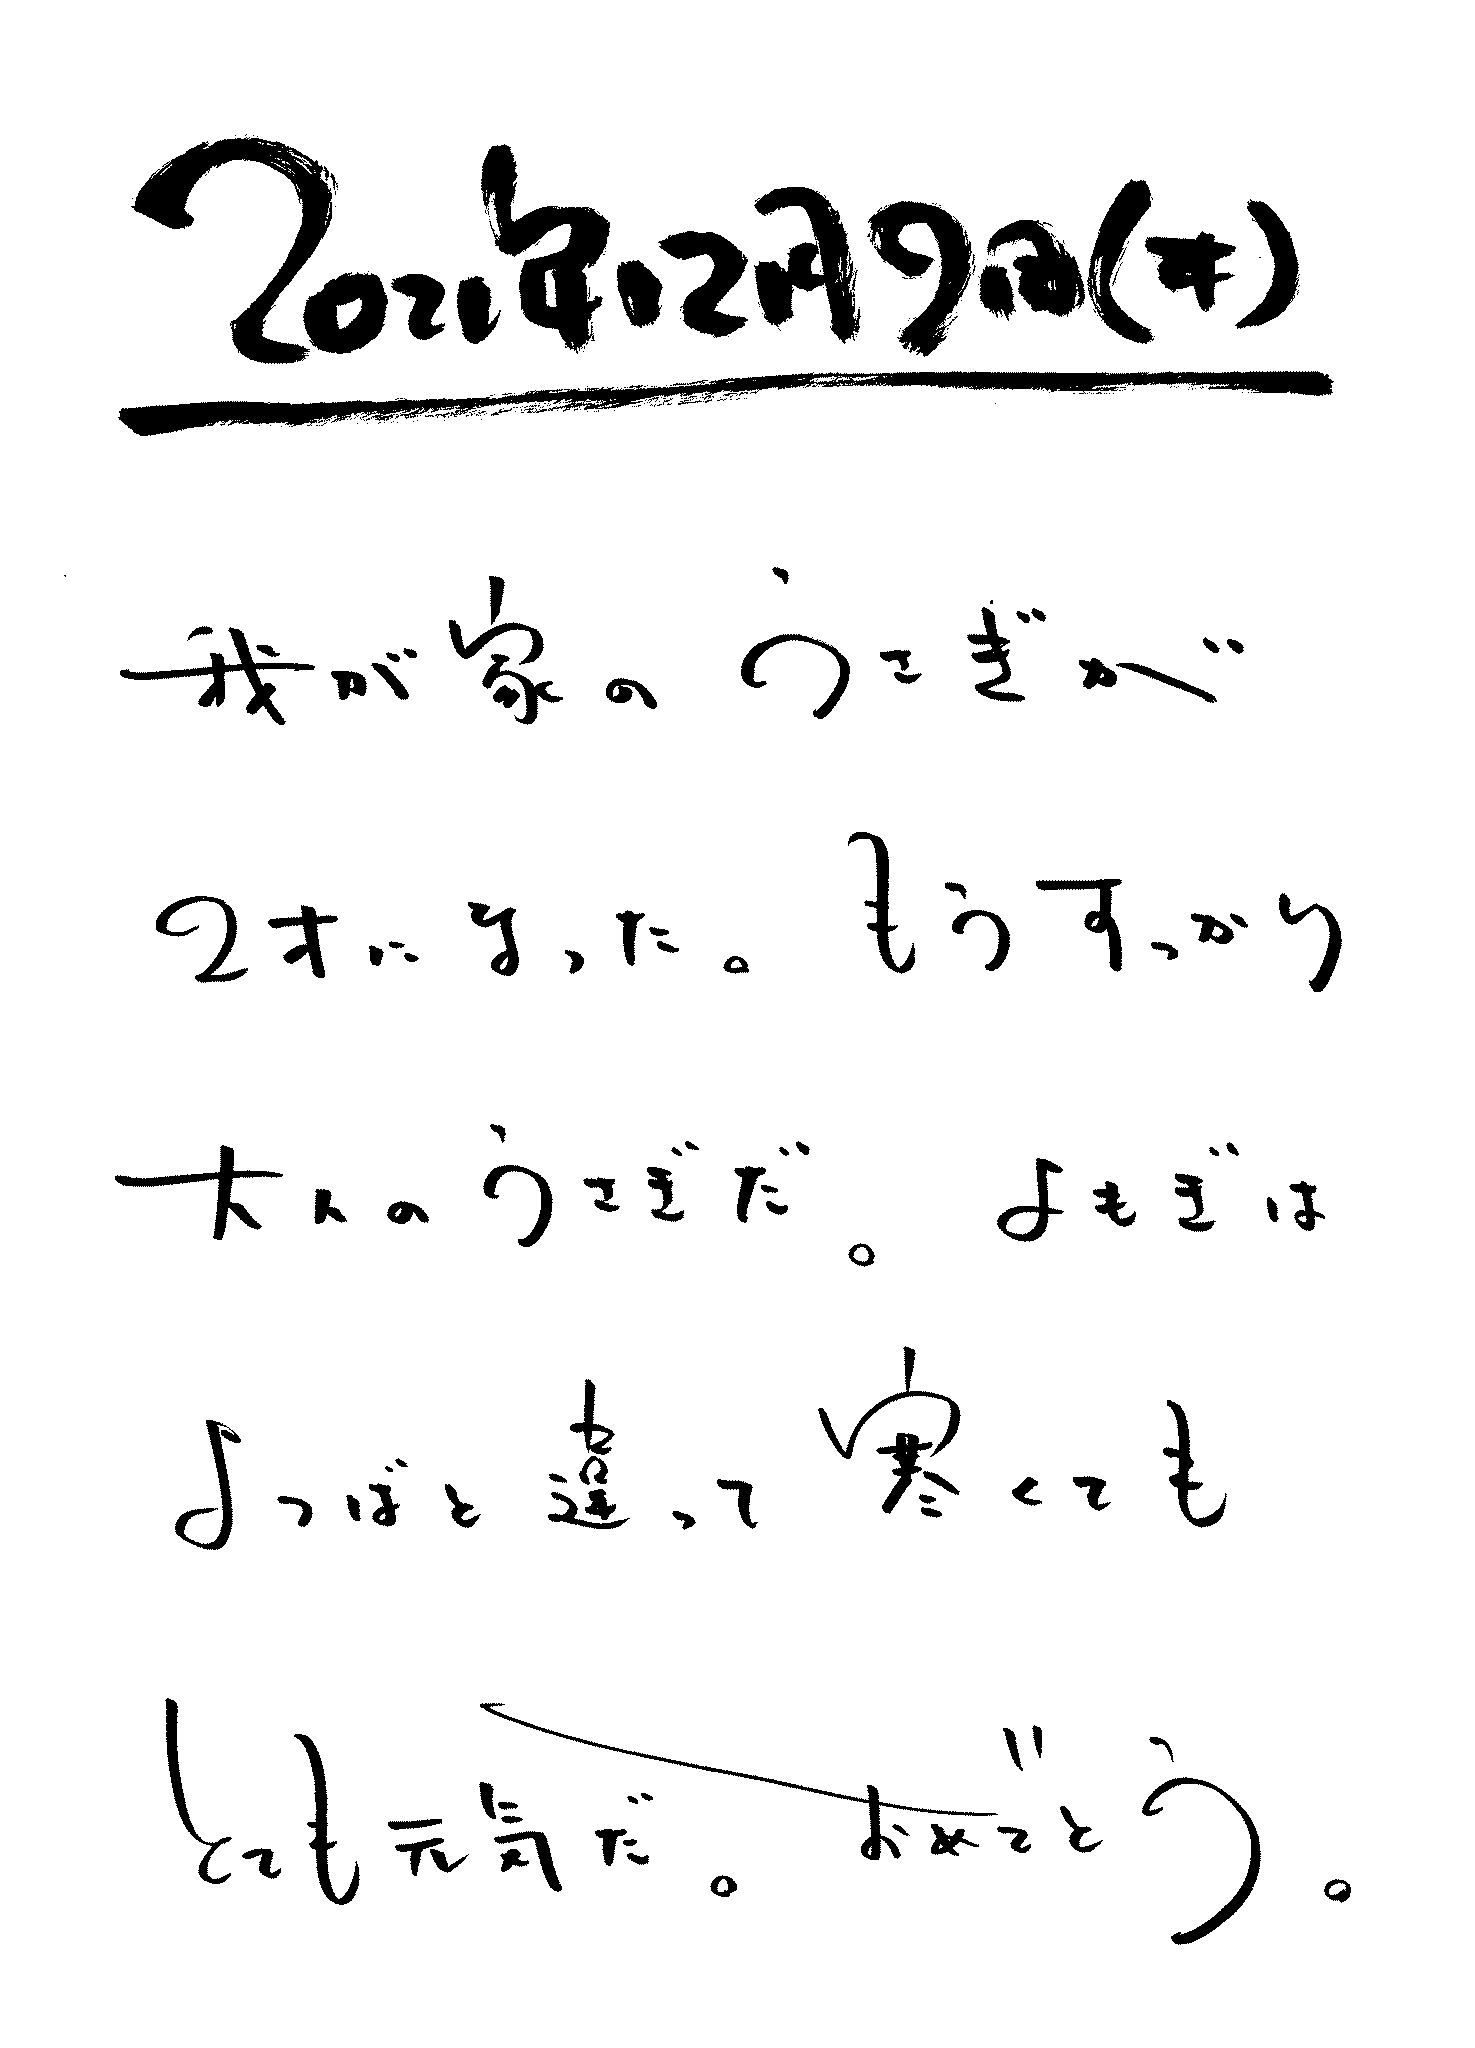 2021年12月9日(木)
我が家のうさぎが
2才になった。もうすっかり
大人のうさぎだ。よもぎは
よつばと違って寒くても
とても元気だ。おめでとう。